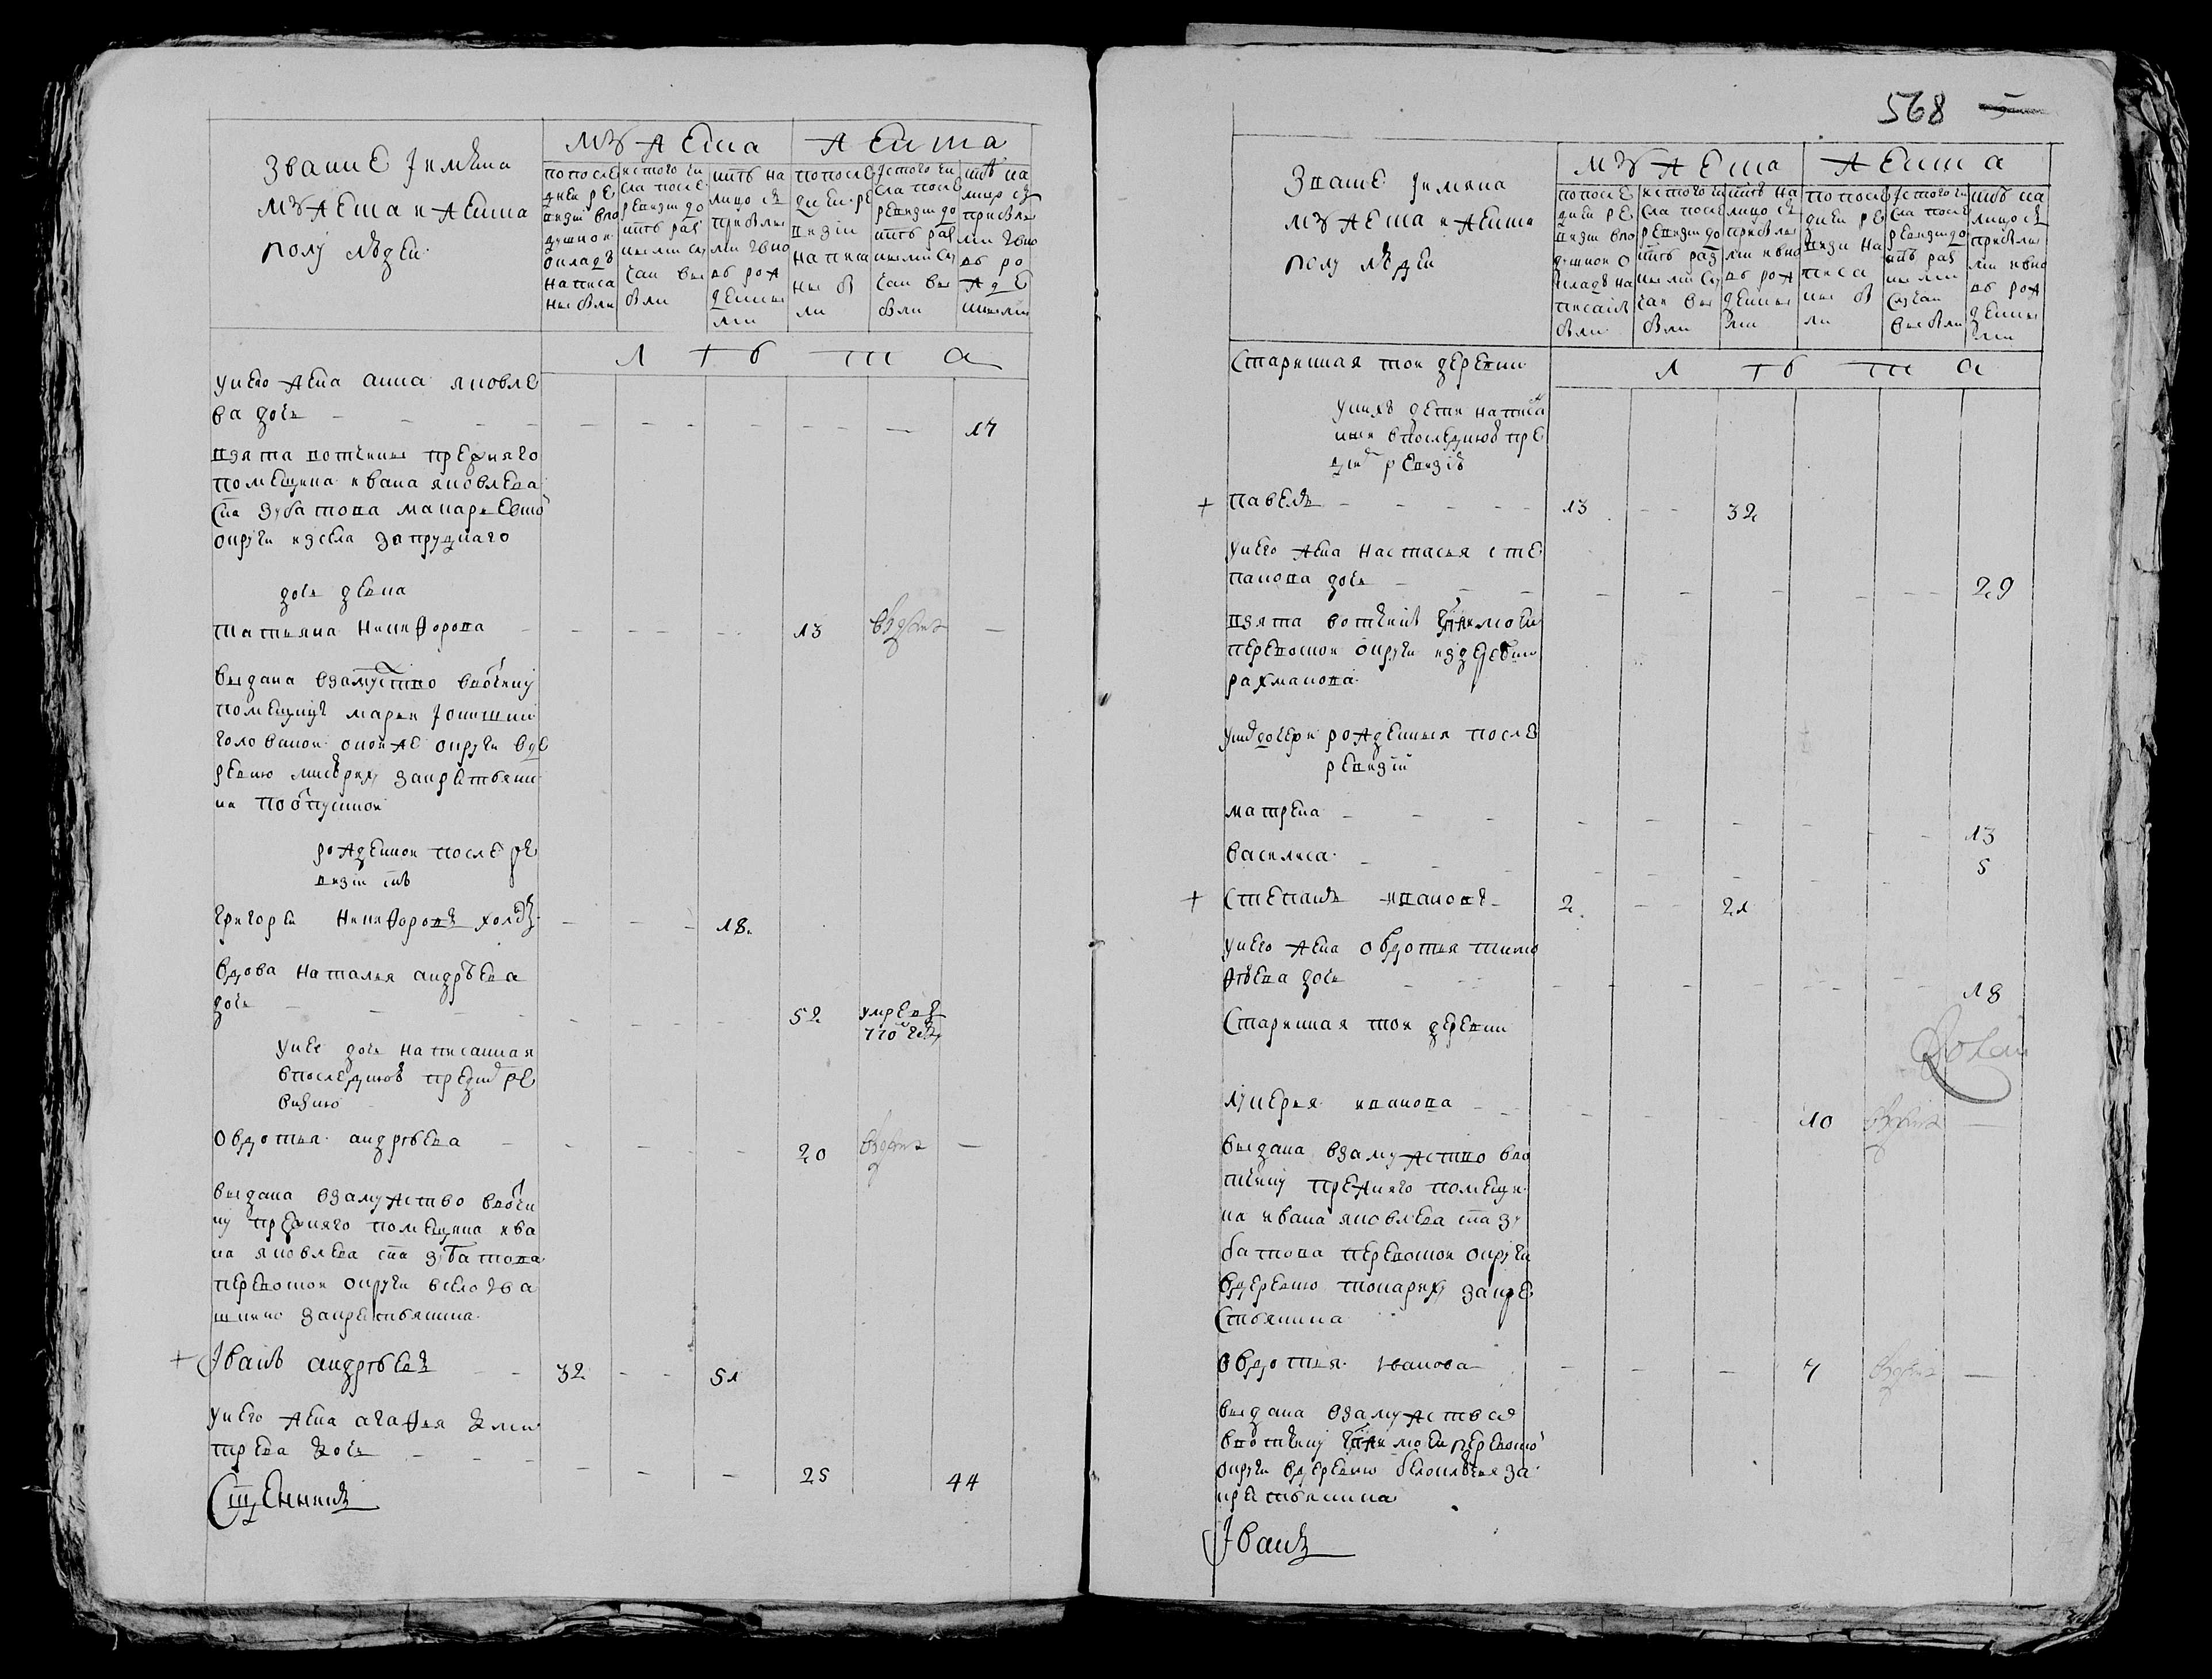 звание и имяна
мужеска и женска
полу людей
мужеска
женска
по после
дней ре
визии в по
душной
окладъ
написа
ны были
ис того чи
сла после
ревизии до
нынѣ раз
ными слу
чаи вы
были
нынѣ на
лицо съ
прибылы
ми и вно
въ рож
денны
ми
по после
дней ре
визии
написа
ны бы
ли
ис того чи
сла после
ревизии до
нынѣ раз
ными слу
чаи вы
были
нынѣ на
лицо съ
прибылы
ми и вно
въ ро
жде
нными
лѣта
у него жена анна яковле
ва дочь
17
взята вотчины прежняго
помещика ивана яковлева
сна зубатова макарьевской
округи из села запруднаго
дочь девка
татьяна никифорова
13
выдана взамужство в вотчину
помещицѣ марьи
головиной оной же округи в де
ревню за крестьяни
на по отпускной
рожденной после ре
визии снъ
григорей никифоровъ холостъ
18
вдова наталья андрѣева
дочь
52
умре въ
у нее дочь написанная
в последнюю пред сим ре
визию
овдотья андрѣева
20
выдана взамужство в вотчи
ну прежняго помещика ива
на яковлева сна зубатова
перевоской округи в село
за крестьянина
Иванъ андрѣевъ
32
51
у него жена агафья дми
трева дочь
25
44
Сщенникъ
568
звание имяна
мужеска и женска
полу людей
мужеска
женска
по после
дней ре
визии в по
душной о
кладъ на
писаны
были
ис того чи
сла после
ревизии до
нынѣ раз
ными слу
чаи вы
были
нынѣ на
лицо съ
прибылы
ми и вно
въ рож
денны
ми
по после
дней ре
визии на
писа
ны бы
ли
ис того чи
сла после
ревизии до
нынѣ раз
ными
случаи
выбыли
нынѣ на
лицо съ
прибылы
ми и вно
въ рож
денны
ми
лѣта
Старинная той деревни
у нихъ дети написа
ныя в последнюю пре
д сим ревизию
павелъ
13
32
у него жена настасья сте
панова дочь
29
взята вотчины
перевоской округи из деревни
рахманова
у них дочери рожденныя после
ревизии
матрена
13
василиса
5
Степанъ ивановъ
2
21
у него жена овдотья тимо
фѣева дочь
18
Старинная той деревни
лукерья иванова
10
выдана взамужство в во
тчину прежняго помещи
ка ивана яковлева сна зу
батова перевоской округи
в деревню за кре
стьянина
овдотья иванова
7
выдана взамужства
в вотчину перевоской
округи в деревню за
крестьянина
Иванъ